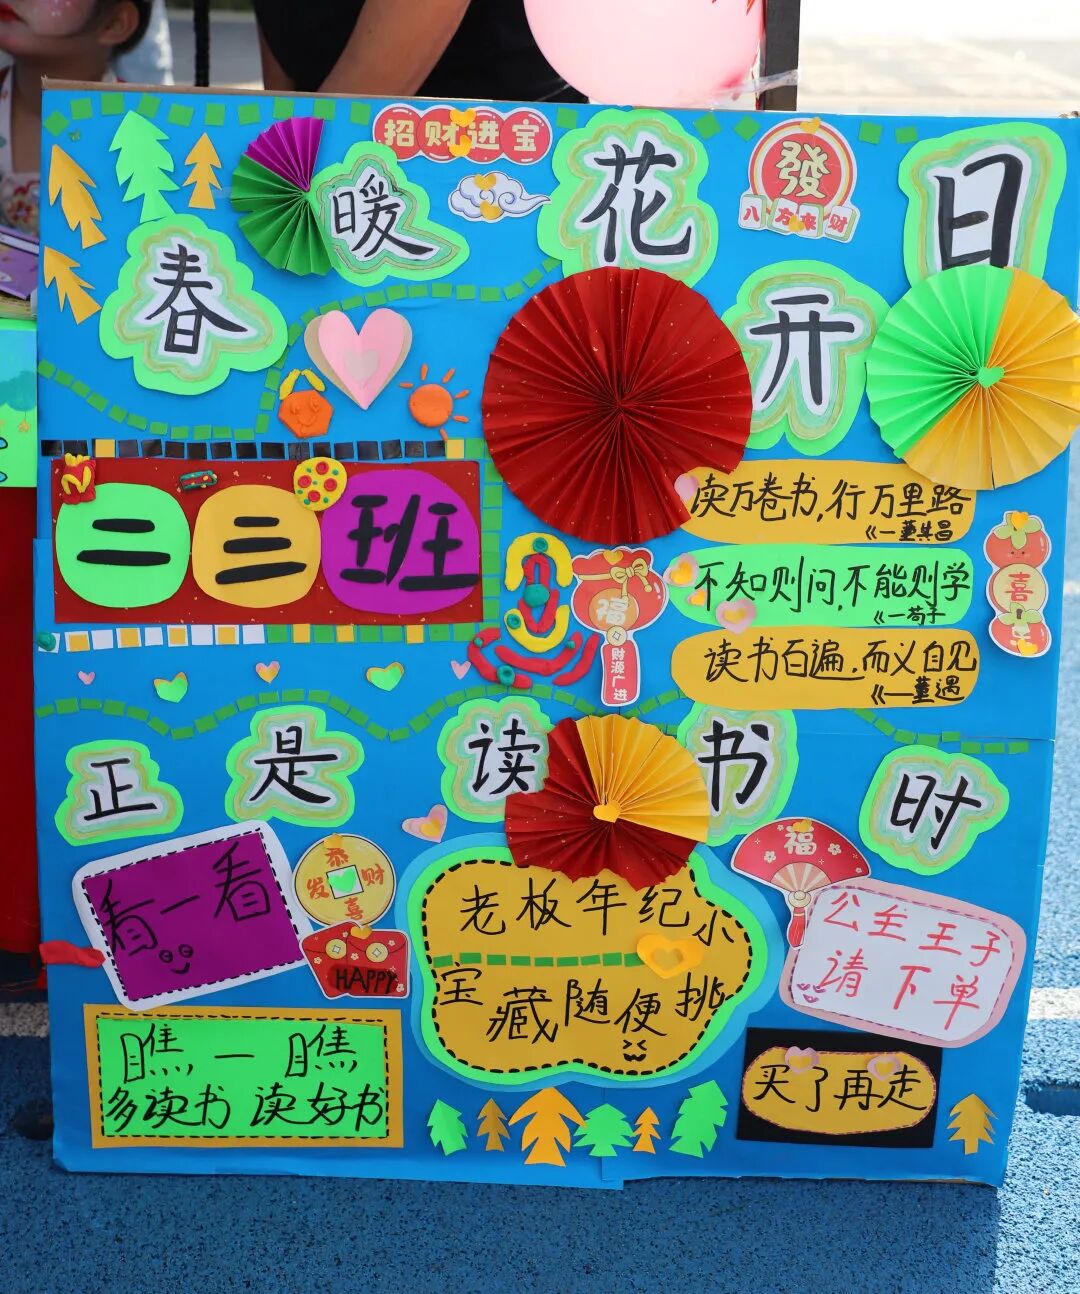 招财进宝
發
八方来财
春暖花开日
二三班
读万卷书,行万里路
《一董其昌
不知则问,不能则学
《一荀子
读书百遍,而义自见
《一董遇
喜
福
财源广进
正是读书时
看一看
恭喜发财
HAPPY
老板年纪小
宝藏随便挑
福
公主王子
请下单
瞧一瞧
多读书 读好书
买了再走